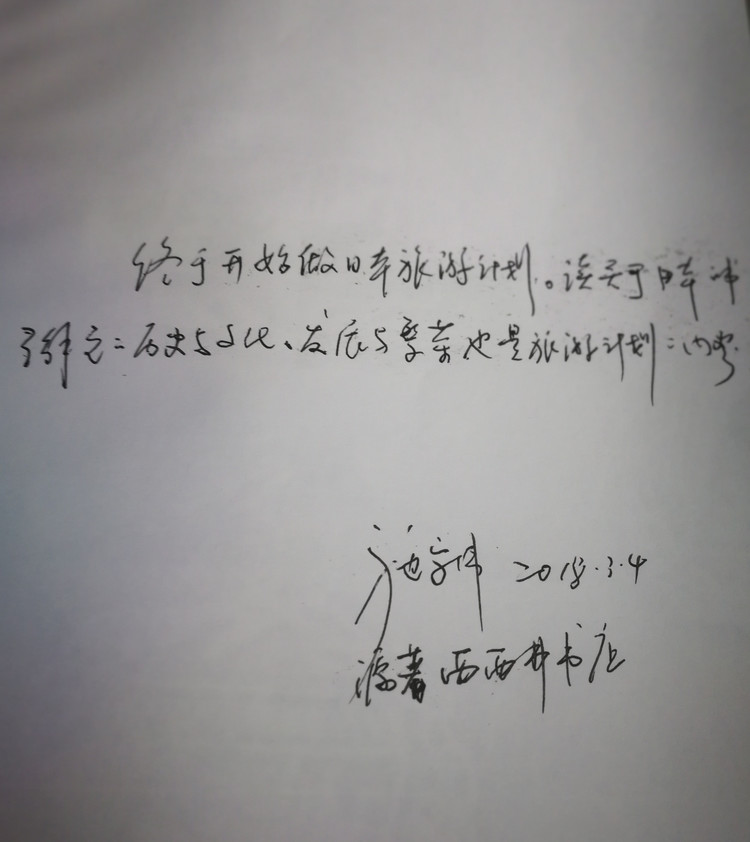 终于开始做日本旅游计划。读关于日本の书
了解它之历史与文化、发展与繁荣也是旅游计划之内容
2018.3.4
西西弗书店